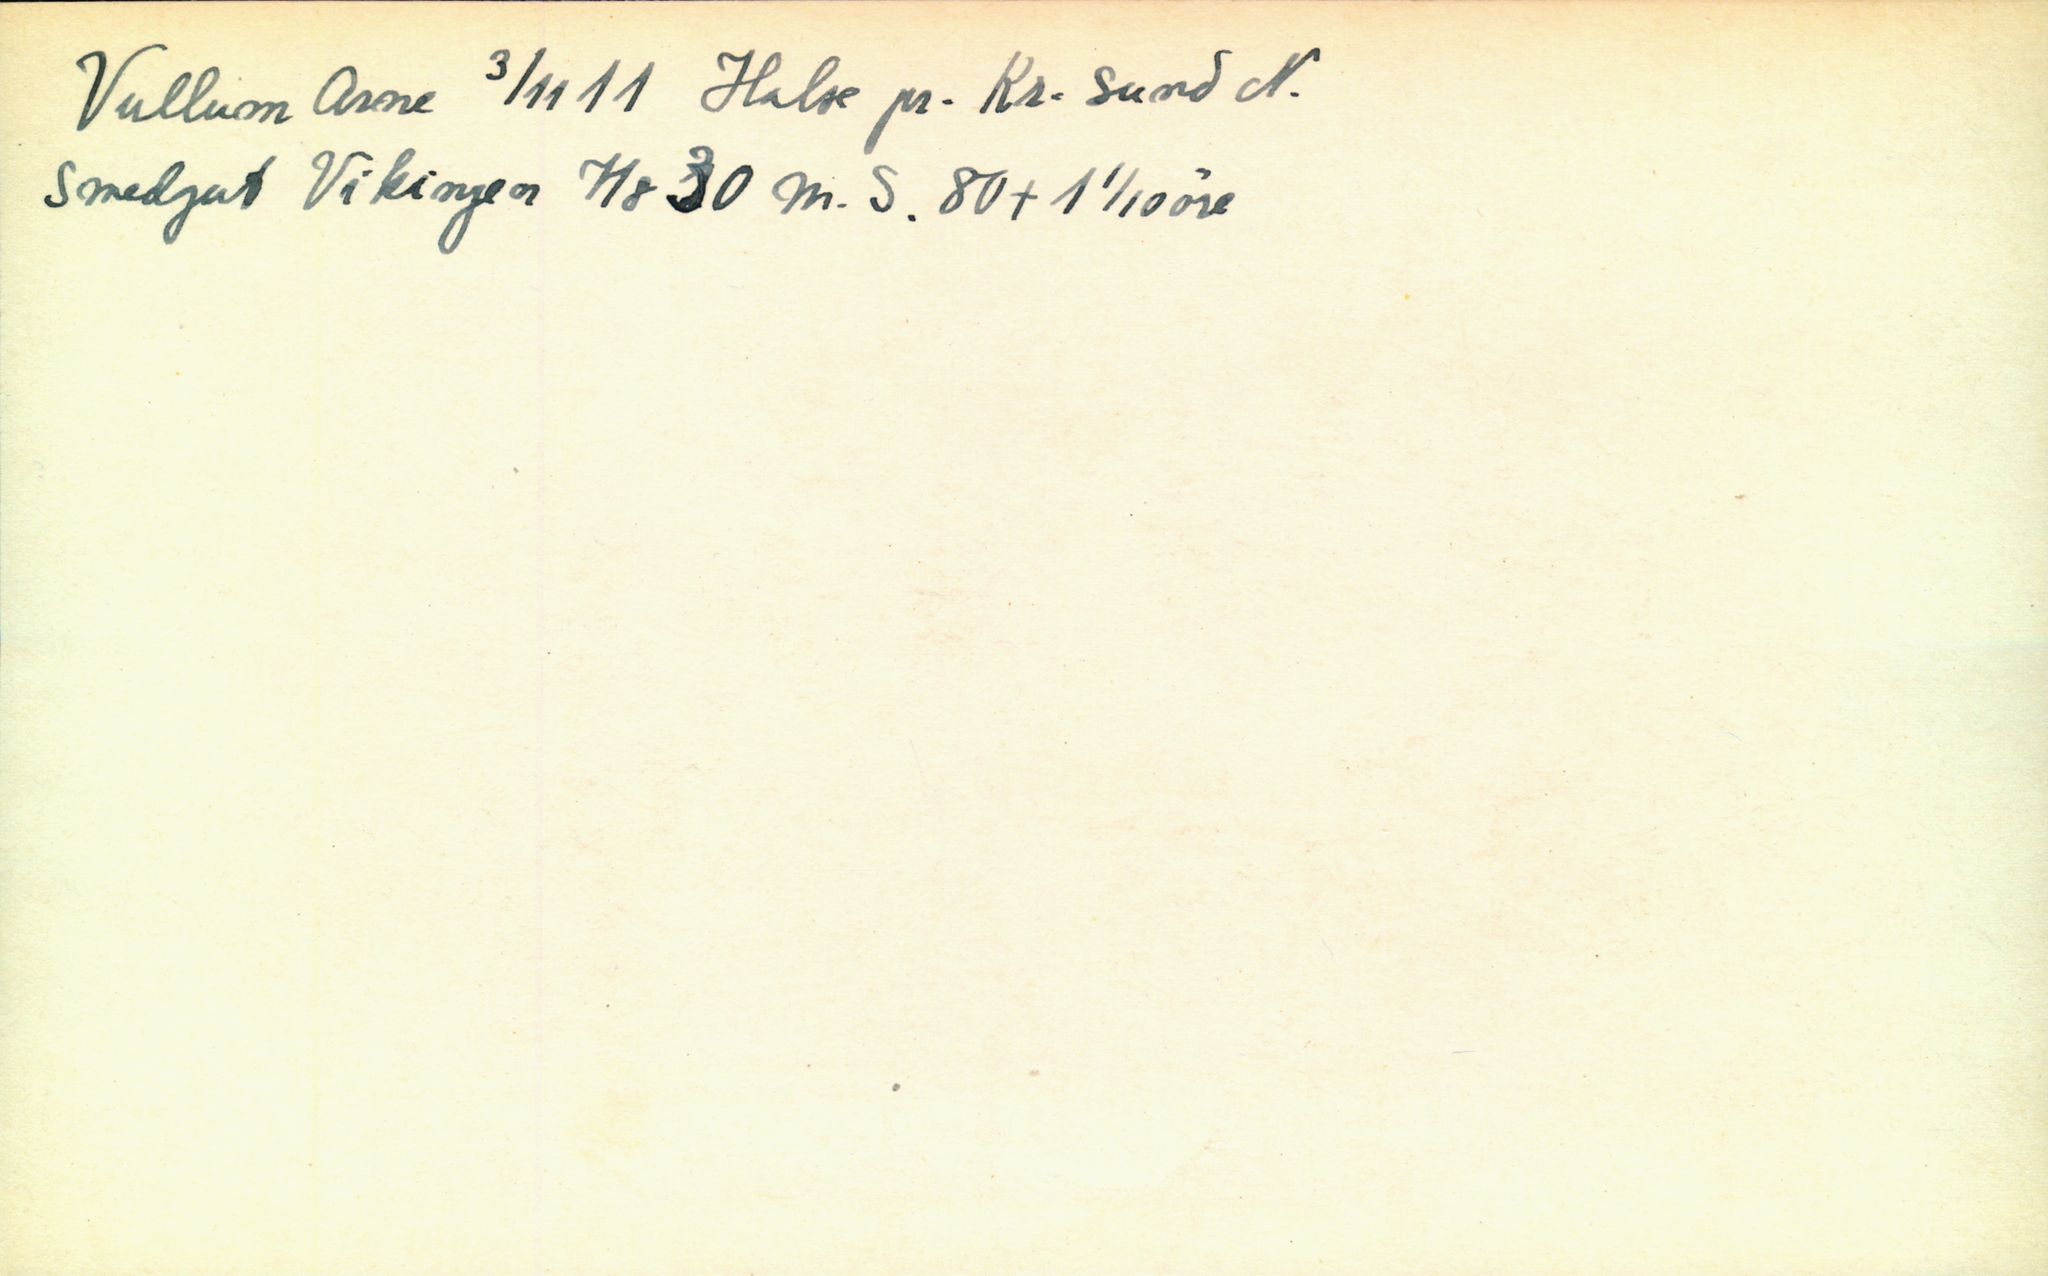 Vullum Arne 3/11 11 Halse pr. Kr. sund N.
Smedgut Vikingen Hs 30 m. S. 80 + 1 1/10 öre